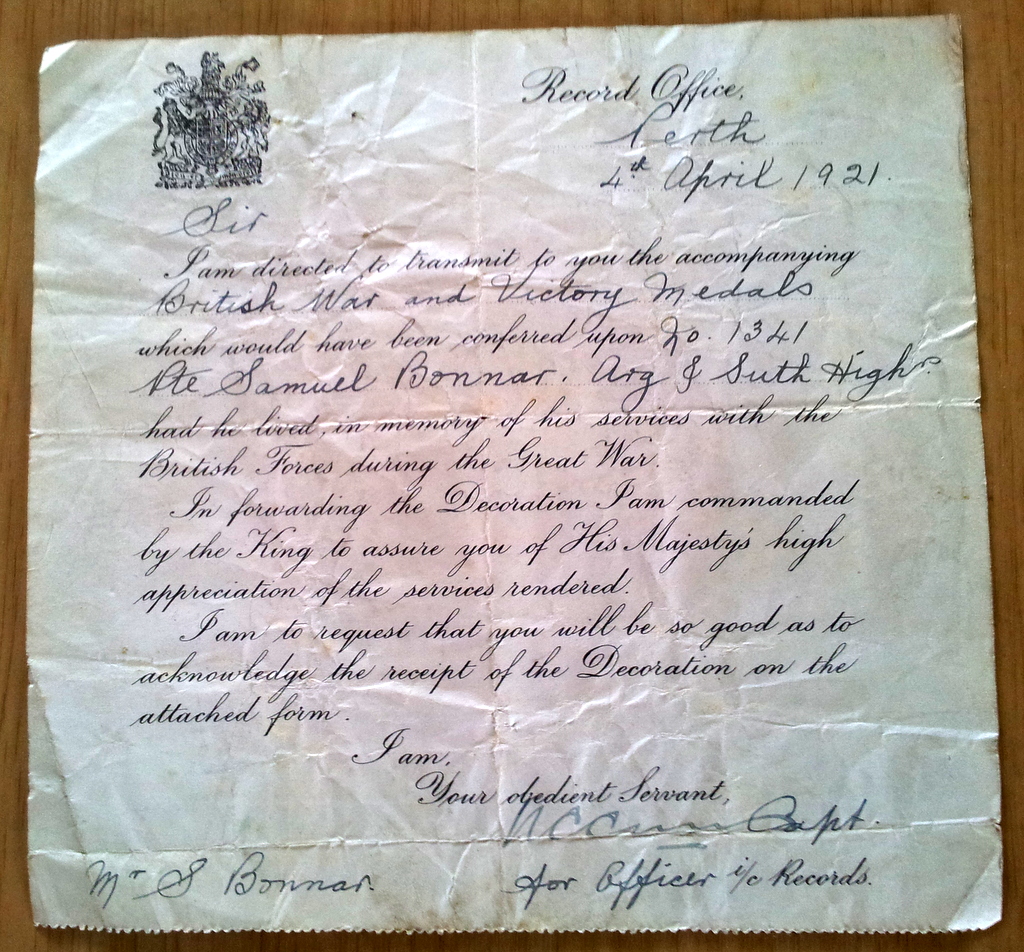 Record Office,
Perth
4th April 1921.
Sir
I am directed to transmit to you the accompanying
British War and Victory Medals
which would have been conferred upon No. 1341
Pte Samuel Bonnar. Arg & Suth Highrs.
had he lived, in memory of his services with the
British Forces during the Great War.
In forwarding the Decoration I am commanded
by the King to assure you of His Majesty's high
appreciation of the services rendered.
I am to request that you will be so good as to
acknowledge the receipt of the Decoration on the
attached form.
I am,
Your obedient Servant,
Capt.
for Officer i/c Records.
Mr S Bonnar.